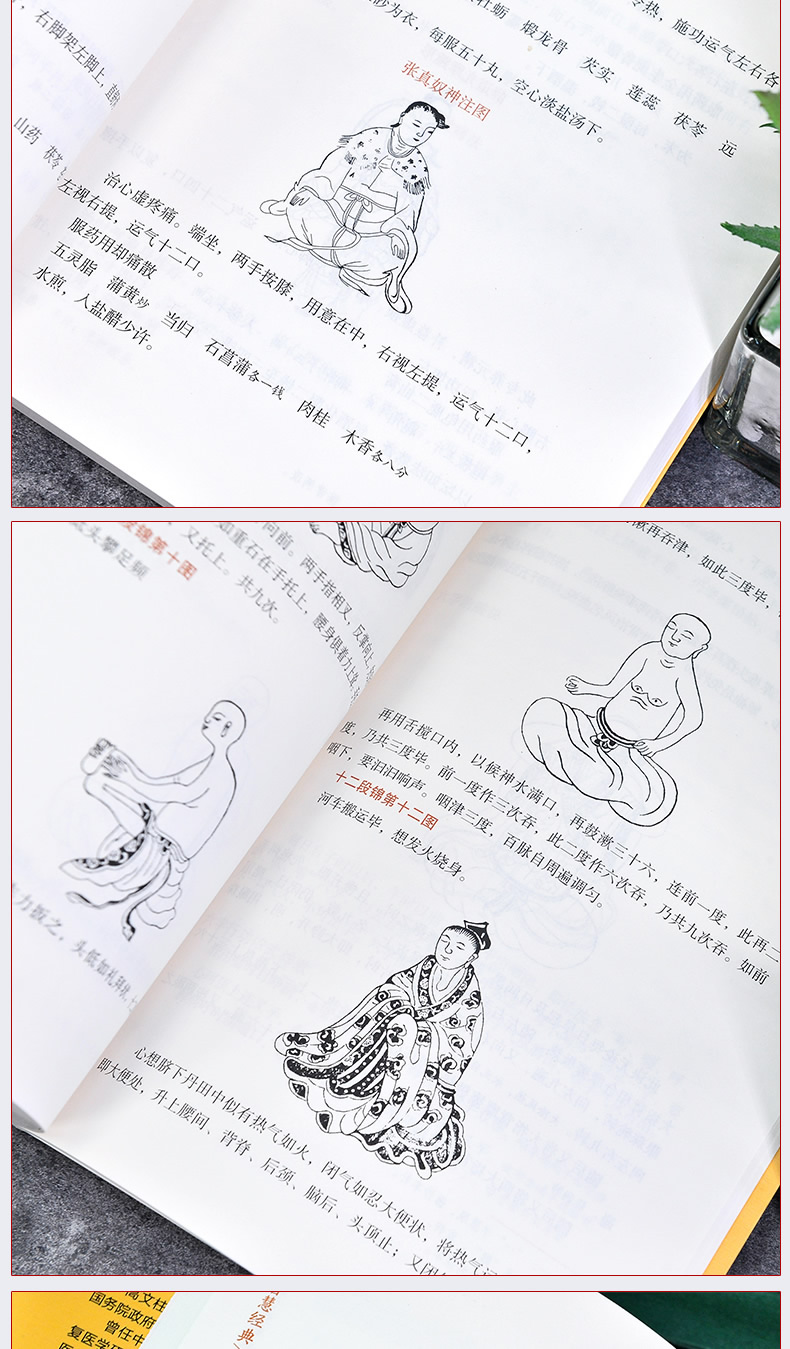 右脚架左脚上，
山药 茯苓
牡蛎 煅龙骨 芡实 莲蕊 茯苓 远
热，施功运气左右各
砂为衣，每服五十丸，空心淡盐汤下。
张真奴神注图
治心虚疼痛。端坐，两手按膝，用意在中，右视左提，运气十二口，
左视右提，运气十二口。
服药用却痛散
五灵脂 蒲黄炒 当归 石菖蒲各一钱 肉桂 木香各八分
水煎，人盐醋少许。
向前。两手指相叉，反掌向上，
如重石在手托上，腰身俱着力上耸，
，又托上。共九次。
段锦第十图
头攀足频
力扳之，头低如礼拜状，
漱再吞津，如此三度毕，
再用舌搅口内，以候神水满口，再鼓漱三十六，连前一度，此再二
度，乃共三度毕。前一度作三次吞，此二度作六次吞，乃共九次吞。如前
咽下，要汩汩响声。咽津三度，百脉自周遍调匀。
十二段锦第十二图
河车搬运毕，想发火烧身。
心想脐下丹田中似有热气如火，闭气如忍大便状，将热气运
即大便处，升上腰间、背脊、后颈、脑后、头顶止；又闭
嵩文柱
国务院政府
曾任中
复医学研
慧经典